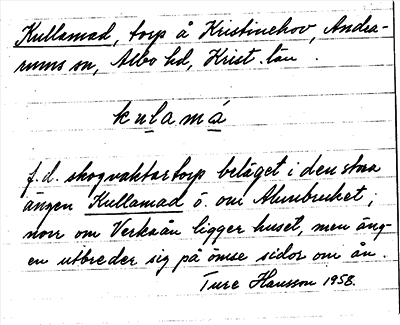 Kullamad, torp å Kristinehov, Andra-
rums sn, Albo hd, Krist. län.
kulamá
f.d. skogvaktartorp beläget i den stora
ängen Kullamad ö. om Alunbruket;
norr om Verkaån ligger huset, men äng-
en utbreder sig på ömse sidor om ån.
Ture Hansson 1958.